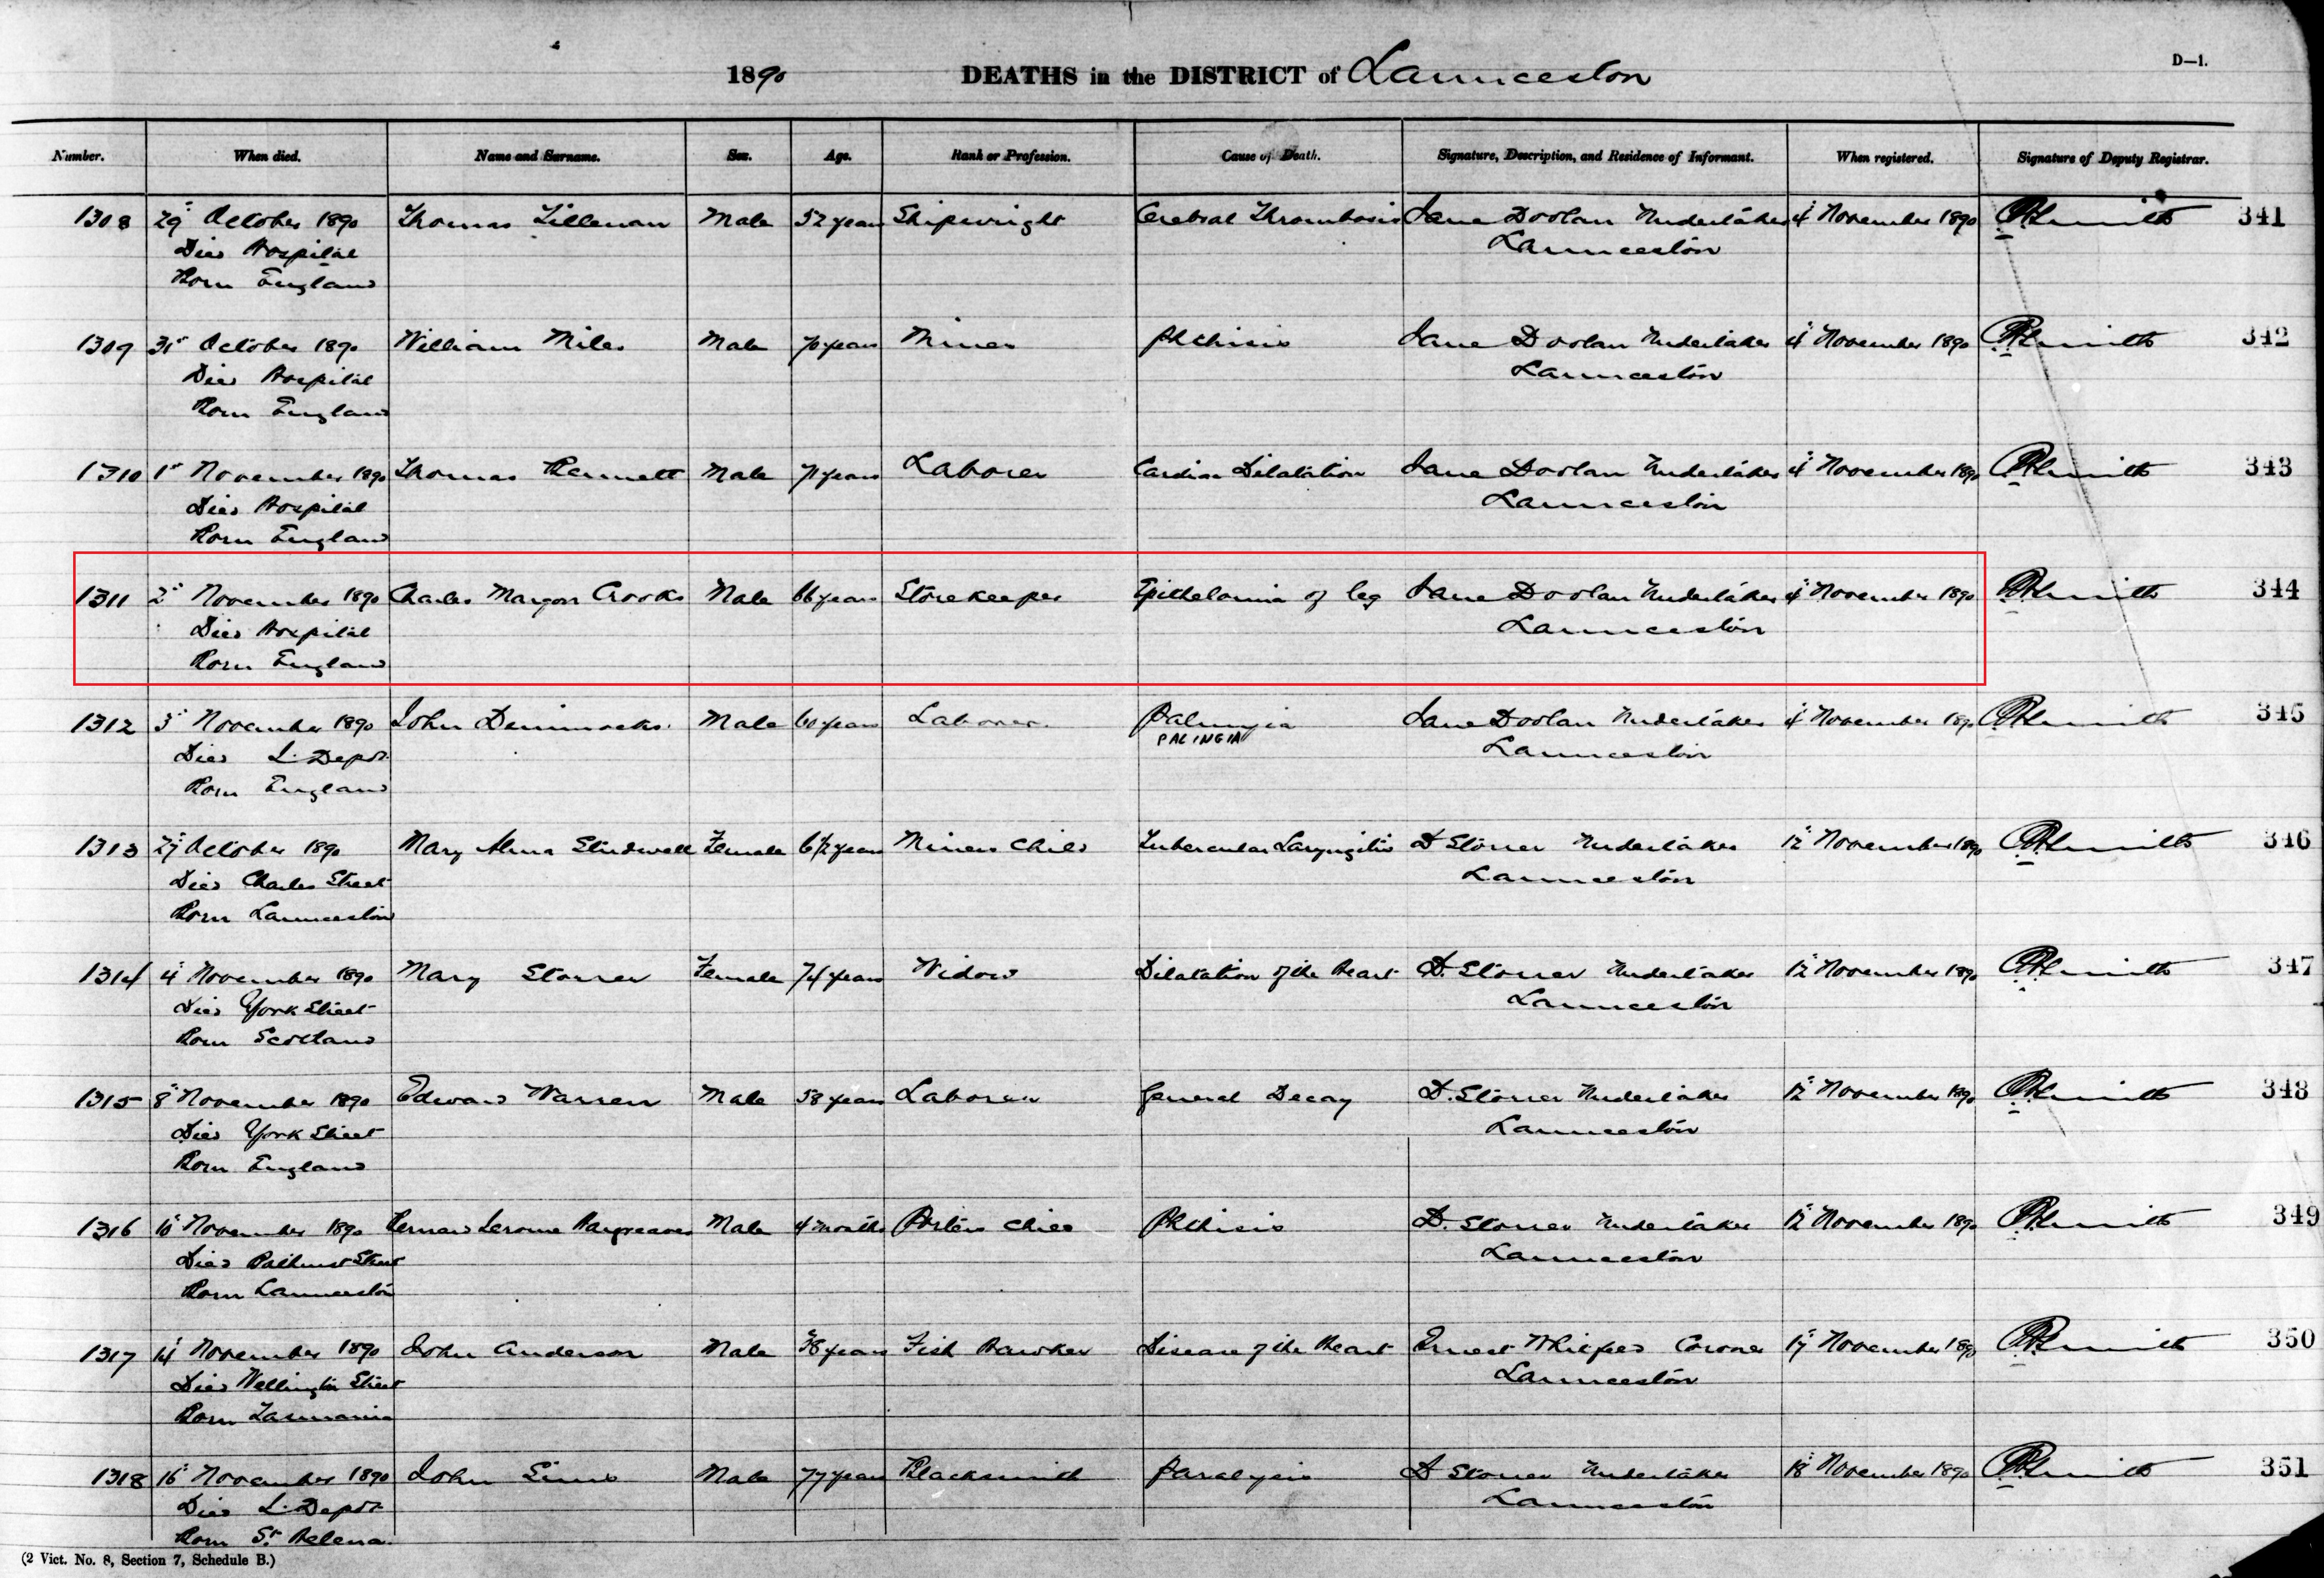 1890 DEATHS in the DISTRICT of Launceston D—1.
Number. When died. Name and Surname. Sex. Age. Rank or Profession. Cause of Death. Signature, Description, and Residence of Informant. When registered. Signature of Deputy Registrar.
1308 29 October 1890 Thomas Male 52 years Shipwright Cerebral Thrombosis Jane Doolan Undertaker 4 November 1890 341
Died Hospital Launceston
Born England
1309 31st October 1890 William Miles Male 70 years Miner Phthisis Jane Doolan Undertaker 4 November 1890 342
Died Hospital Launceston
Born England
1310 1st November 1890 Thomas Bennett Male 71 years Laborer Cardiac Dilatation Jane Doolan Undertaker 4 November 1890 343
Died Hospital Launceston
Born England
1311 2 November 1890 Charles Crooks Male 66 years Storekeeper Epithelomia of leg Jane Doolan Undertaker 4 November 1890 344
Died Hospital Launceston
Born England
1312 3 November 1890 John Male 60 years Laborer Jane Doolan Undertaker 4 November 1890 345
PALINGIA
Died L. Depot Launceston
Born England
1313 27 October 1890 Mary Female 6½ years Miners Child Tubercular Laryngitis D Storrer Undertaker 12 November 1890 346
Died Charles Street Launceston
Born Launceston
1314 4 November 1890 Mary Storrer Female 74 years Widow Dilatation of the Heart D. Storrer Undertaker 12 November 1890 347
Died York Street Launceston
Born Scotland
1315 8 November 1890 Edward Warren Male 58 years Laborer General Decay D. Storrer Undertaker 12 November 1890 348
Died York Street Launceston
Born England
1316 10 November 1890 Bernard Jerome Hargreaves Male 4 months Porters Child Phthisis D. Storrer Undertaker 12 November 1890 349
Died Bathurst Street Launceston
Born Launceston
1317 14 November 1890 John Anderson Male 38 years Fish Hawker Disease of the Heart Ernest Whitfeld Coroner 17 November 1890 350
Died Wellington Street Launceston
Born Tasmania
1318 16 November 1890 John Sims Male 77 years Blacksmith Paralysis D Storrer Undertaker 18 November 1890 351
Died L. Depot Launceston
Born St Helena
(2 Vict. No. 8, Section 7, Schedule B.)